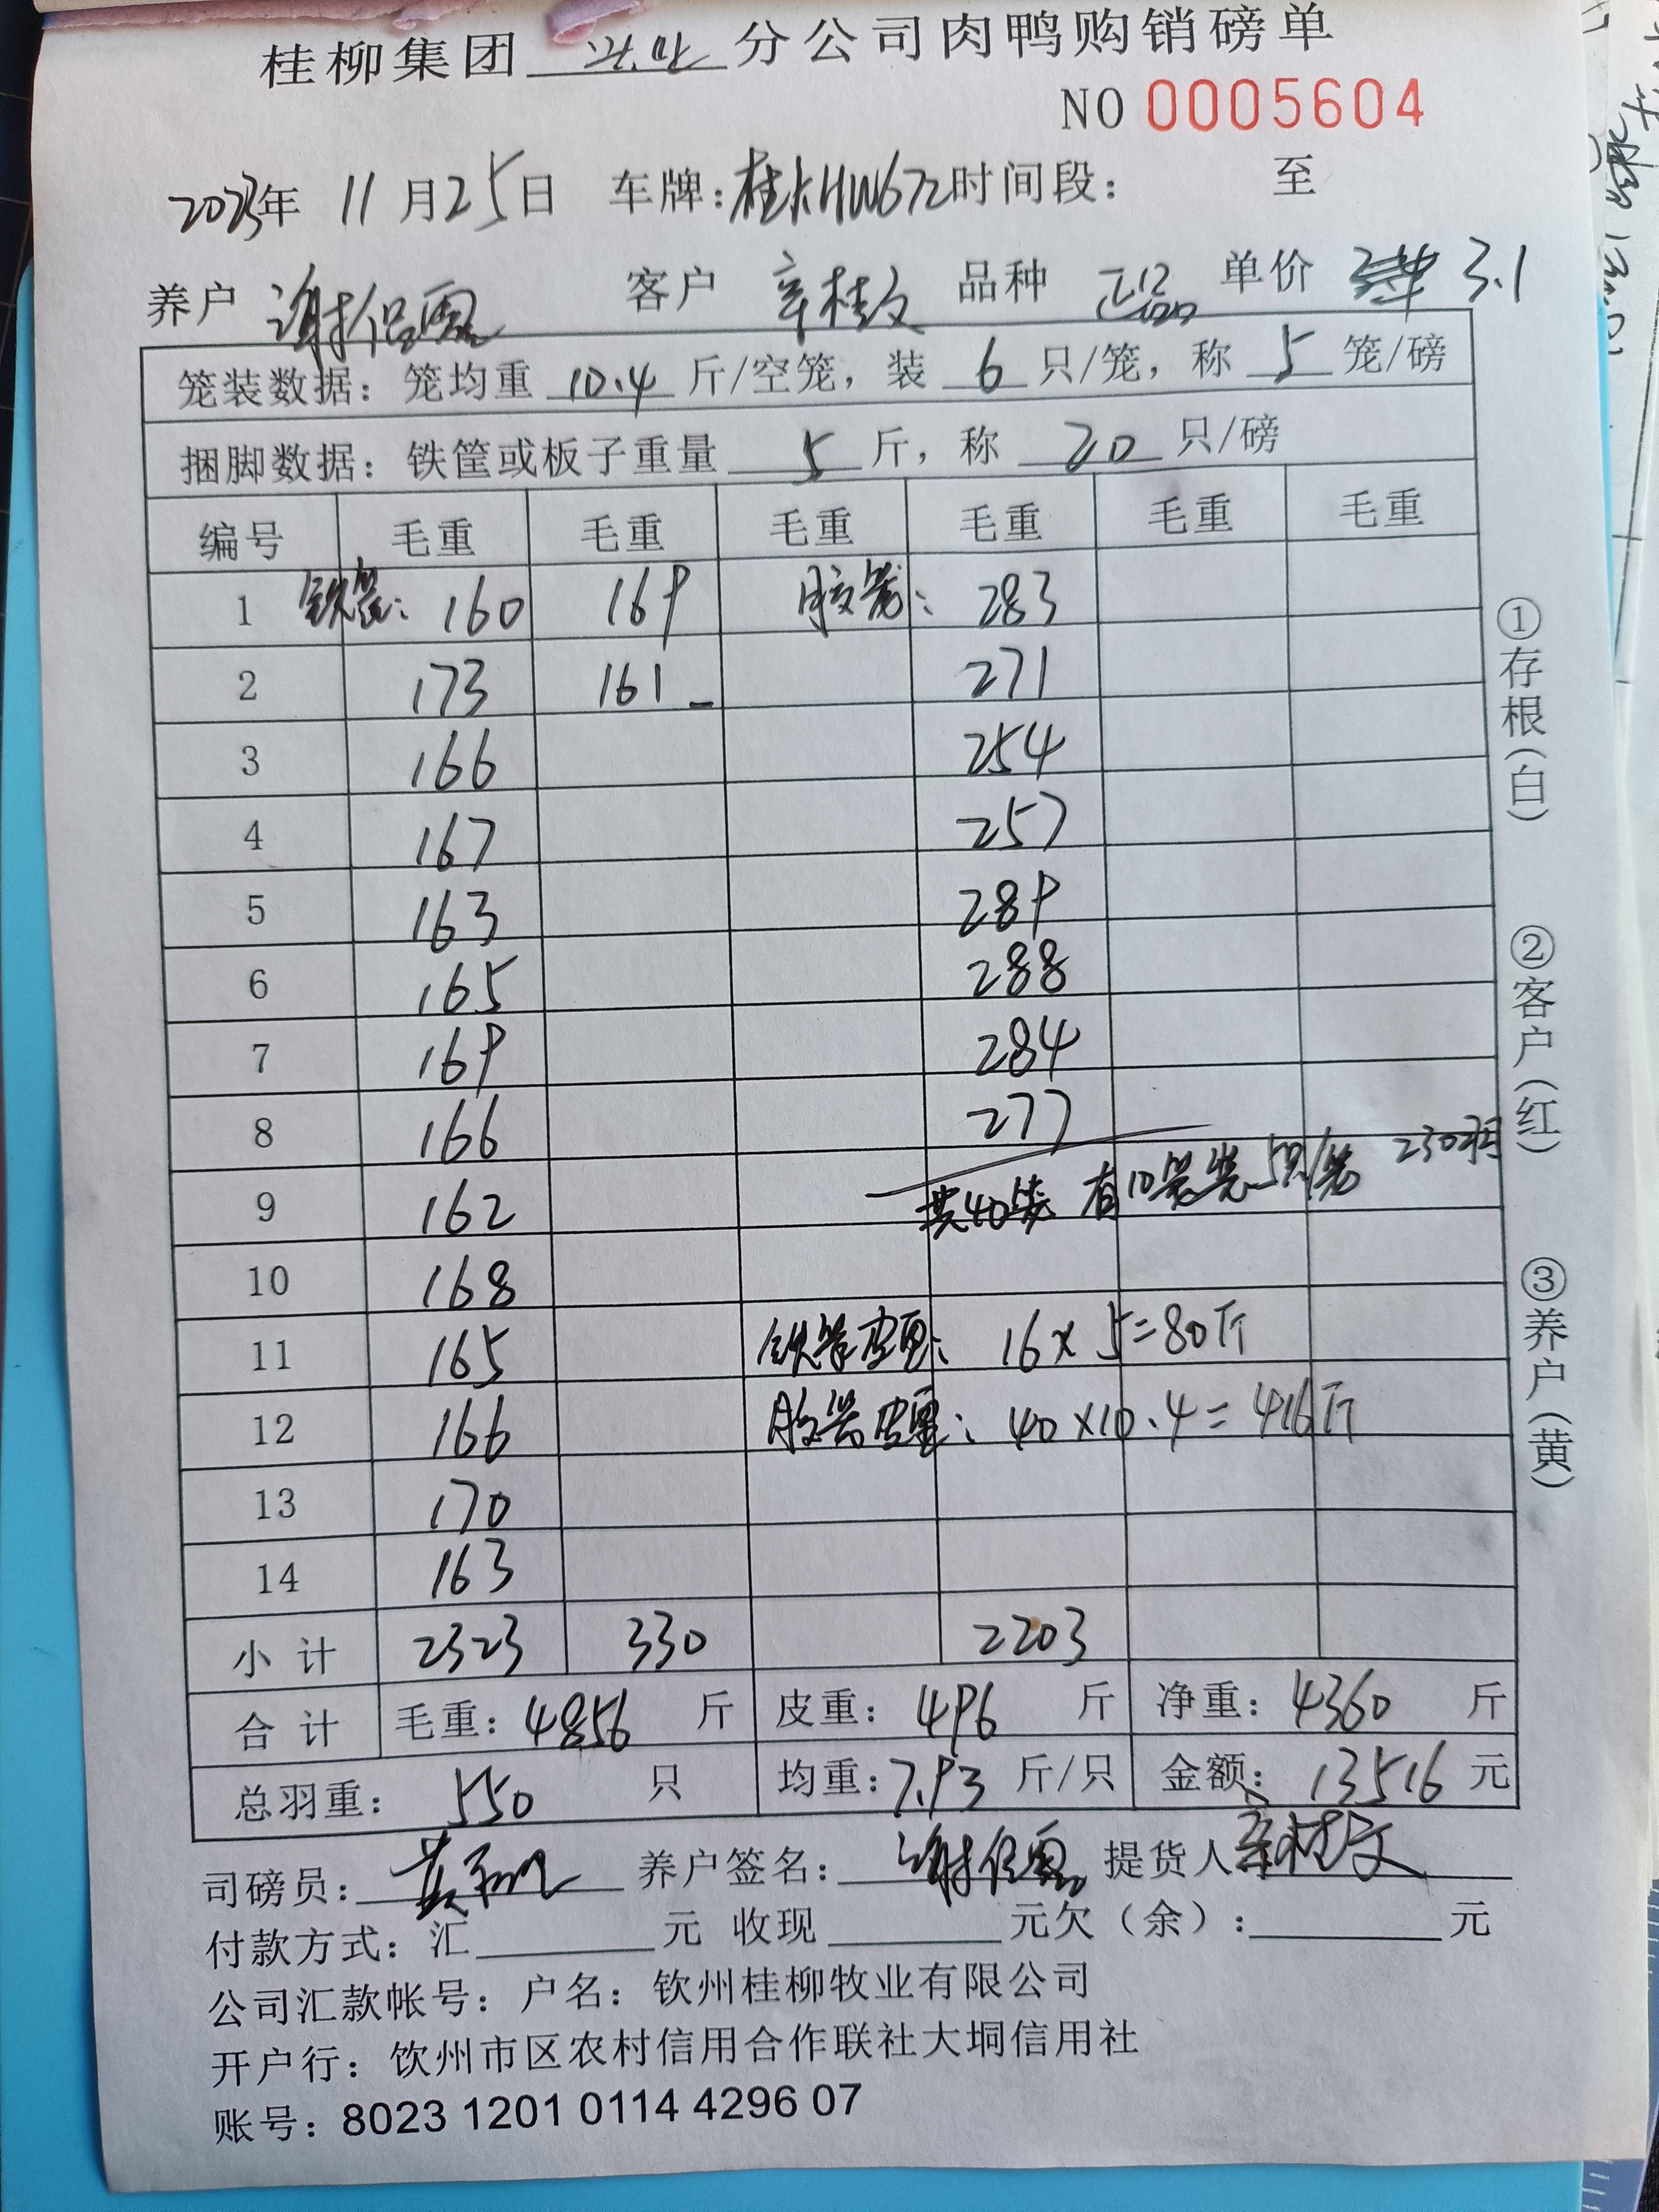 桂柳集团 分公司肉鸭购销磅单
NO 0005604
2023年 11月25日 车牌:桂KHW672时间段: 至
养户 谢保恩 客户 辛桂文 品种 正品 单价 3.1
笼装数据: 笼均重 10.4 斤/空笼, 装 6 只/笼, 称 5 笼/磅
捆脚数据: 铁筐或板子重量 5 斤, 称 20 只/磅
编号 毛重 毛重 毛重 毛重 毛重 毛重
1 铁筐: 160 169 胶笼: 283
2 173 161 271
3 166 254
4 167 257
5 163 289
6 165 288
7 169 284
8 166 277
9 162 共40笼 有10笼装5只/笼 230羽
10 168
11 165 铁笼皮重: 16×5=80斤
12 166 胶笼皮重: 40×10.4=416斤
13 170
14 163
小计 2323 330 2203
合计 毛重: 4856 斤 皮重: 496 斤 净重: 4360 斤
总羽重: 550 只 均重: 7.93 斤/只 金额: 13516 元
司磅员: 养户签名: 谢保恩 提货人 辛桂文
付款方式: 汇 元 收现 元欠(余): 元
公司汇款帐号: 户名: 钦州桂柳牧业有限公司
开户行: 钦州市区农村信用合作联社大垌信用社
账号: 8023 1201 0114 4296 07
①存根(白)
②客户(红)
③养户(黄)